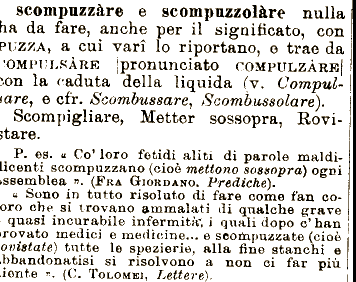 scompuzzàre e scompuzzolàre nulla
ha da fare, anche per il significato, con
PUZZA, a cui varî lo riportano, e trae da
COMPULSÀRE [pronunciato COMPULZÀRE]
con la caduta della liquida (v. Compul-
sare, e cfr. Scombussare, Scombussolare).
Scompigliare, Metter sossopra, Rovi-
stare.
P. es. « Co' loro fetidi aliti di parole maldi-
licenti scompuzzano (cioè mettono sossopra) ogni
assemblea ». (FRA GIORDANO. Prediche).
« Sono in tutto risoluto di fare come fan co-
loro che si trovano ammalati di qualche grave
e quasi incurabile infermità, i quali dopo c'han
provato medici e medicine... e scompuzzate (cioè
rovistate) tutte le spezierie, alla fine stanchi e
abbandonatisi si risolvono a non ci far più
niente ». (C. TOLOMEI, Lettere).